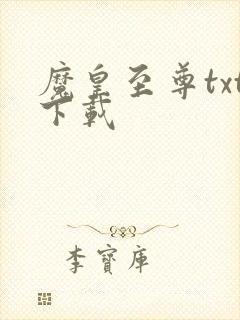 魔皇至尊txt
下載
李寶库